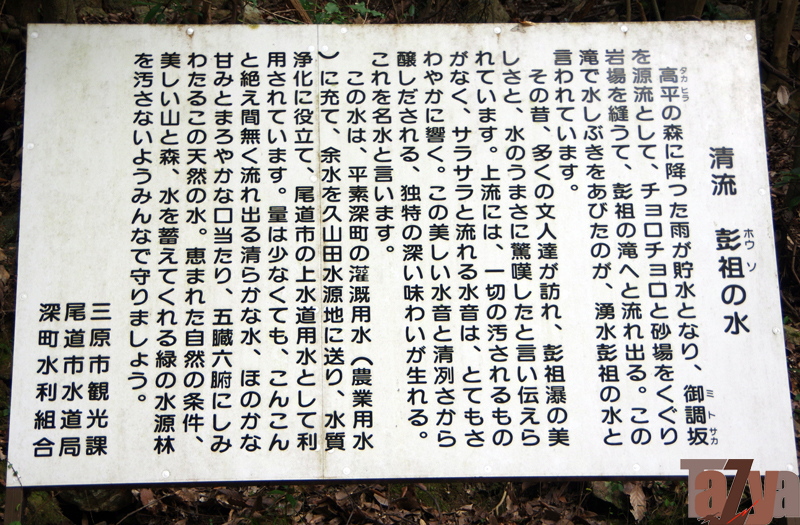 清流　彭祖の水
ホウソ
高平の森に降った雨が貯水となり、御調坂
タカヒラ
ミトサカ
を源流として、チョロチョロと砂場をくぐり
岩場を縫うて、彭祖の滝へと流れ出る。この
滝で水しぶきをあびたのが、湧水彭祖の水と
言われています。
その昔、多くの文人達が訪れ、彭祖瀑の美
しさと、水のうまさに驚嘆したと言い伝えら
れています。上流には、一切の汚されるもの
がなく、サラサラと流れる水音は、とてもさ
わやかに響く。この美しい水音と清冽さから
醸しだされる、独特の深い味わいが生れる。
これを名水と言います。
この水は、平素深町の灌漑用水（農業用水
）に充て、余水を久山田水源地に送り、水質
浄化に役立て、尾道市の上水道用水として利
用されています。量は少なくても、こんこん
と絶え間無く流れ出る清らかな水、ほのかな
甘みとまろやかな口当たり、五臓六腑にしみ
わたるこの天然の水。恵まれた自然の条件、
美しい山と森、水を蓄えてくれる緑の水源林
を汚さないようみんなで守りましょう。
三原市観光課
尾道市水道局
深町水利組合
TaZya